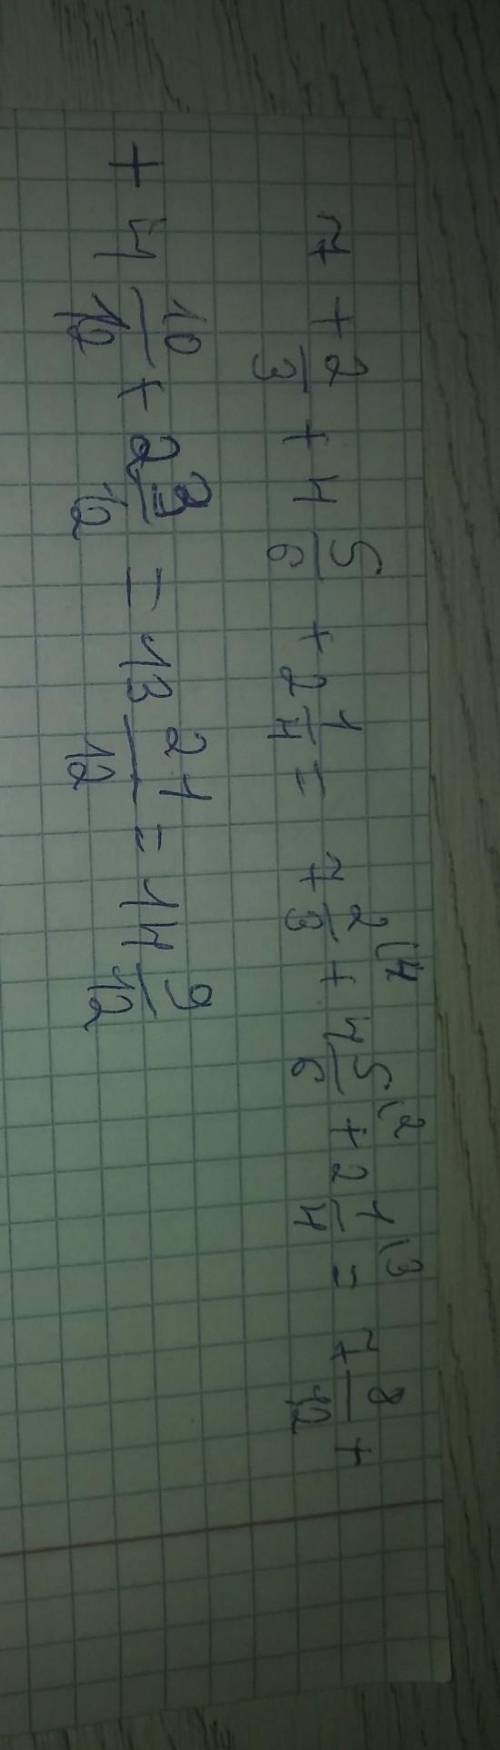 7 + 2/3 + 4 5/6 + 2 1/4 = 7 2\4/3 + 4 5\2/6 + 2 1\3/4 = 7 8/12 +
+ 4 10/12 + 2 3/12 = 13 21/12 = 14 9/12